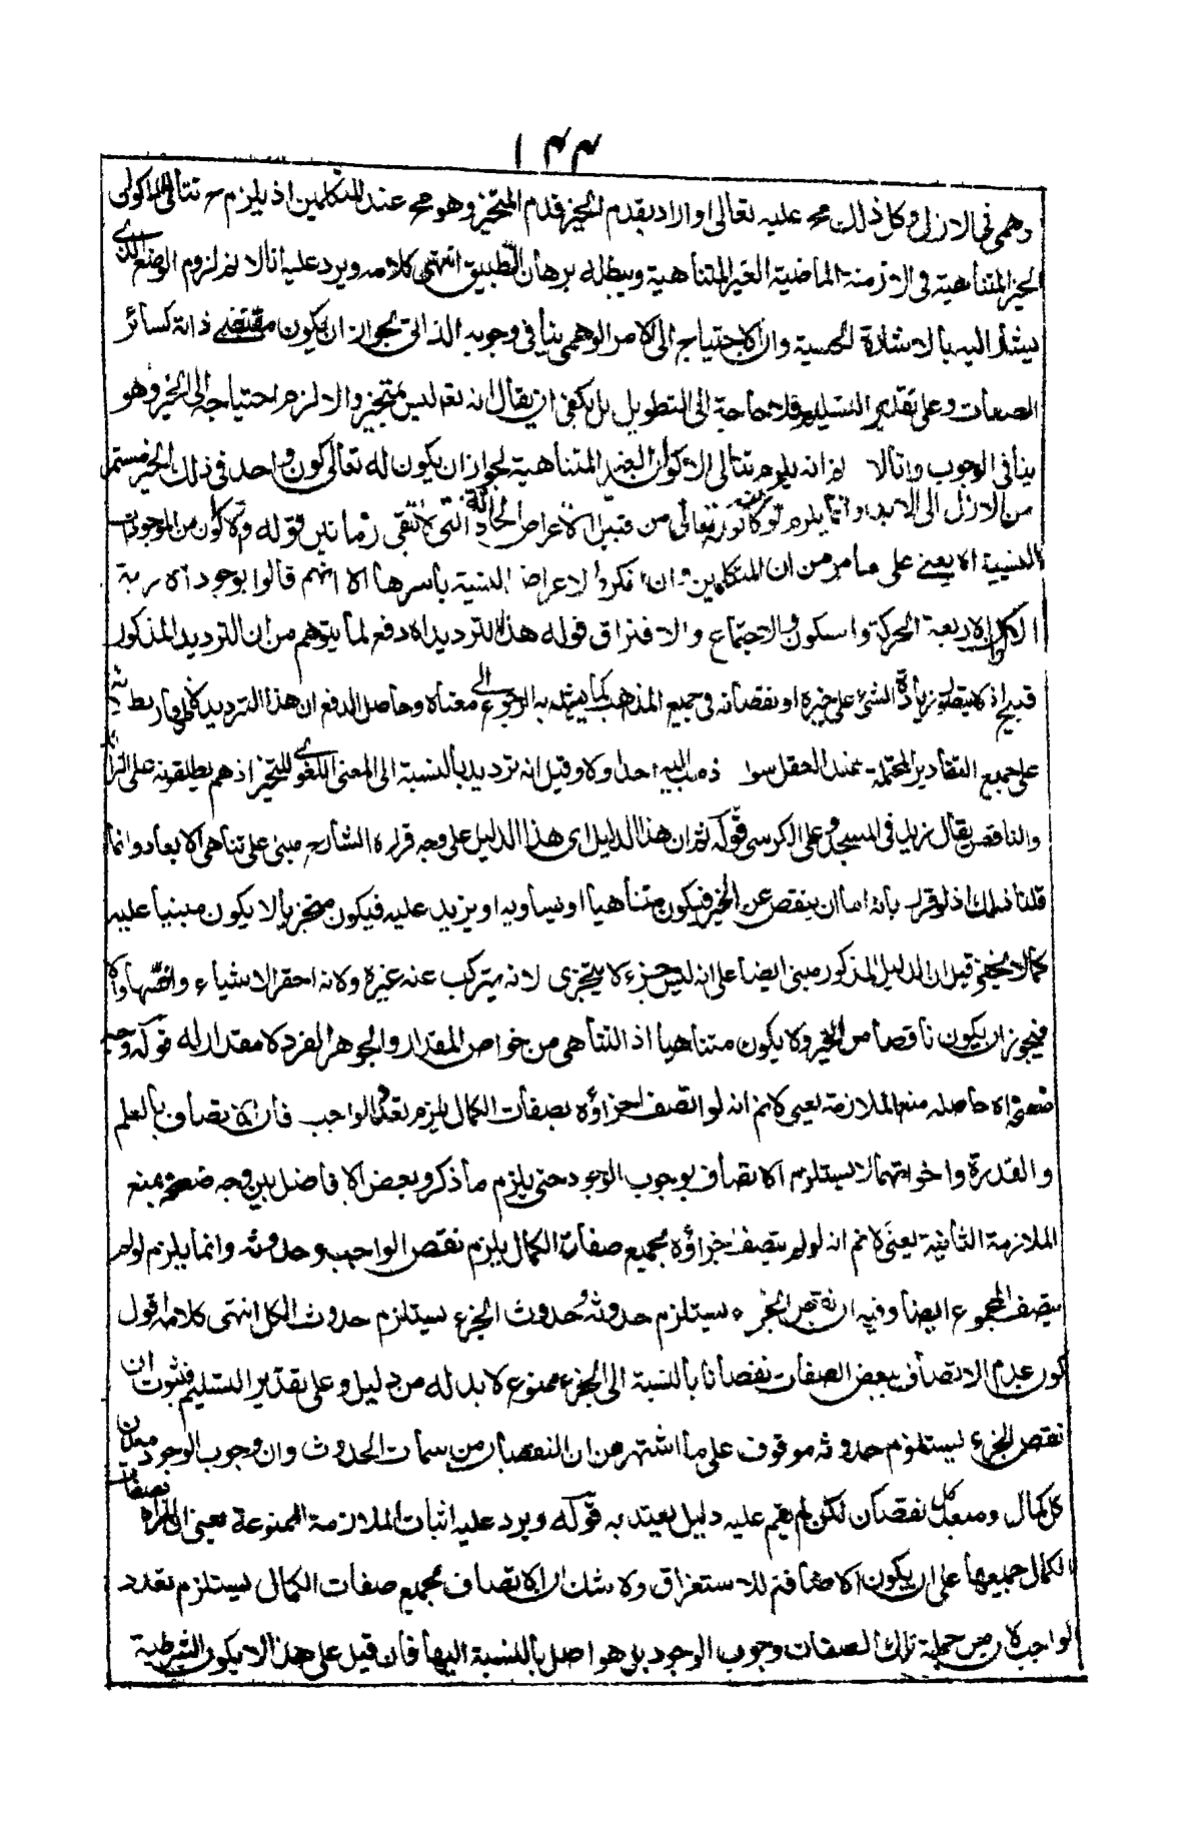 ١٤٤
وهمي في الازل وكل ذلك مح عليه تعالى او اراد بقدم الحيز قدم المتحيز وهو مح عند المتكلمين اذ يلزم ح تتالى الاكوان
الغير المتناهية في الازمنة الماضية الغير المتناهية ويبطله برهان التطبيق انتهى كلامه ويرد عليه انا لا نم لزوم الوضع الذي
يشار اليه بالاشارة الحسية وان الاحتياج الى الامر الوهمي ينافي وجوبه الذاتي لجواز ان يكون مقتضى ذاته كسائر
الصفات وعلى تقدير التسليم فلا حاجة الى التطويل بل يكفي ان يقال انه تع ليس بمتحيز والا لزم احتياجه الى الحيز وهو
ينافي الوجوب وانا لا نم انه يلزم تتالى الاكوان الغير المتناهية لجواز ان يكون له تعالى كون واحد في ذلك الحيز مستمر
من الازل الى الابد وانما يلزم لو كان كونه تعالى من قبيل الاعراض الحادثة التي لا تبقى زمانين قوله والاكوان من الموجودات
النسبية اه يعني على ما مر من ان المتكلمين وان انكروا الاعراض النسبية باسرها الا انهم قالوا بوجود اربعة
الاكوان الاربعة الحركة والسكون والاجتماع والافتراق قوله هذا الترديد اه دفع لما يتوهم من ان الترديد المذكور
قبيح اذ لا يتصور زيادة الشئ على حيزه او نقصانه في جميع المذاهب كما يشهد به الرجوع الى معناه وحاصل الدفع ان هذا الترديد
على جميع التقادير المحتملة عند العقل سواء ذهب اليه احد اولا وقيل انه ترديد بالنسبة الى المعنى اللغوي للتحيز اذ هم يطلقونه على الزائد
والناقص يقال زيد في المسجد وعلى الكرسي قوله ثم ان هذا الدليل اى هذا الدليل على وجه قرره الشارح مبنى على تناهى الابعاد وانما
قلنا ذلك اذ لو قرر بانه اما ان ينقص عن الحيز فيكون متناهيا او يساويه او يزيد عليه فيكون متجزيا لا يكون مبنيا عليه
كما لا يخفى قيل ان الدليل المذكور مبنى ايضا على انه ليس جزء لا يتجزى لانه يتركب عنه غيره ولانه احقر الاشياء واخسها والا
فيجوز ان يكون ناقصا من الحيز ولا يكون متناهيا اذ التناهى من خواص المقدار والجوهر الفرد لا مقدار له قوله وجه
ضعفه اه حاصله منع الملازمة يعنى لا نم انه لو اتصف اجزاؤه بصفات الكمال يلزم تعدد الواجب فان الاتصاف بالعلم
والقدرة واخواتهما لا يستلزم الاتصاف بوجوب الوجود حتى يلزم ما ذكر وبعض الافاضل بين وجه ضعفه بمنع
الملازمة الثانية يعنى لا نم انه لو لم يتصف اجزاؤه بجميع صفات الكمال يلزم نقص الواجب وحدوثه وانما يلزم لو لم
يتصف المجموع ايضا وفيه ان نقص الجزء يستلزم حدوثه وحدوث الجزء يستلزم حدوث الكل انتهى كلامه اقول
كون عدم الاتصاف ببعض الصفات نقصانا بالنسبة الى الجزء ممنوع لا بد له من دليل وعلى تقدير التسليم فثبوت ان
نقص الجزء يستلزم حدوثه موقوف على ما اشتهر من ان النقصان من سمات الحدوث وان وجوب الوجود معدن
كل كمال ومبعد كل نقصان لكن لم يقم عليه دليل يعتد به قوله ويرد عليه اثبات الملازمة الممنوعة يعنى ان المراد بصفات
الكمال جميعها على ان يكون الاضافة للاستغراق ولا شك ان الاتصاف بجميع صفات الكمال يستلزم تعدد
الواجب لان من جملة تلك الصفات وجوب الوجود بل هو اصل بالنسبة اليها فان قيل على هذا لا يكون الشرطية